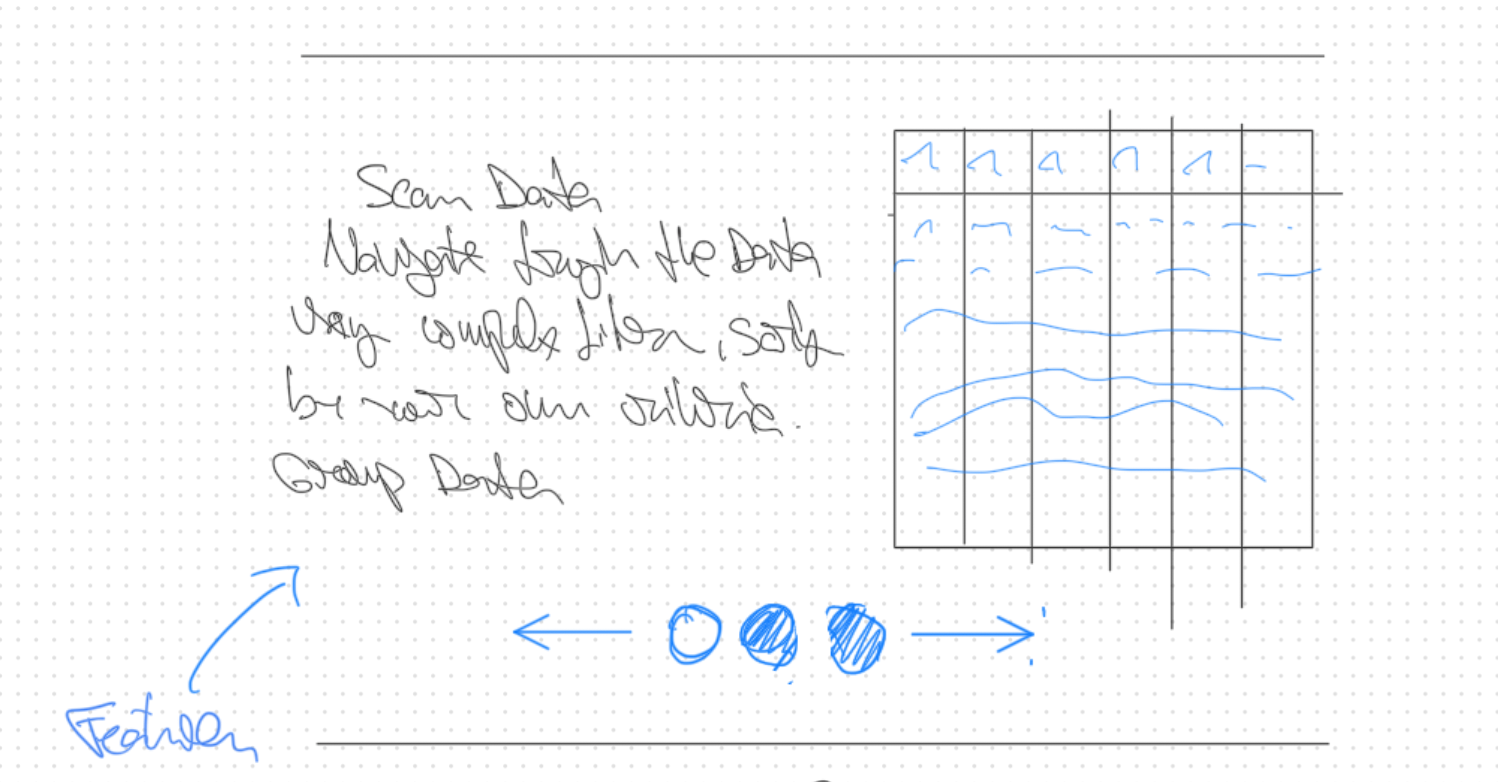 Scan Data
Navigate trough the Data
very complex filter, sort
by your own criteria.
Group Data
Features